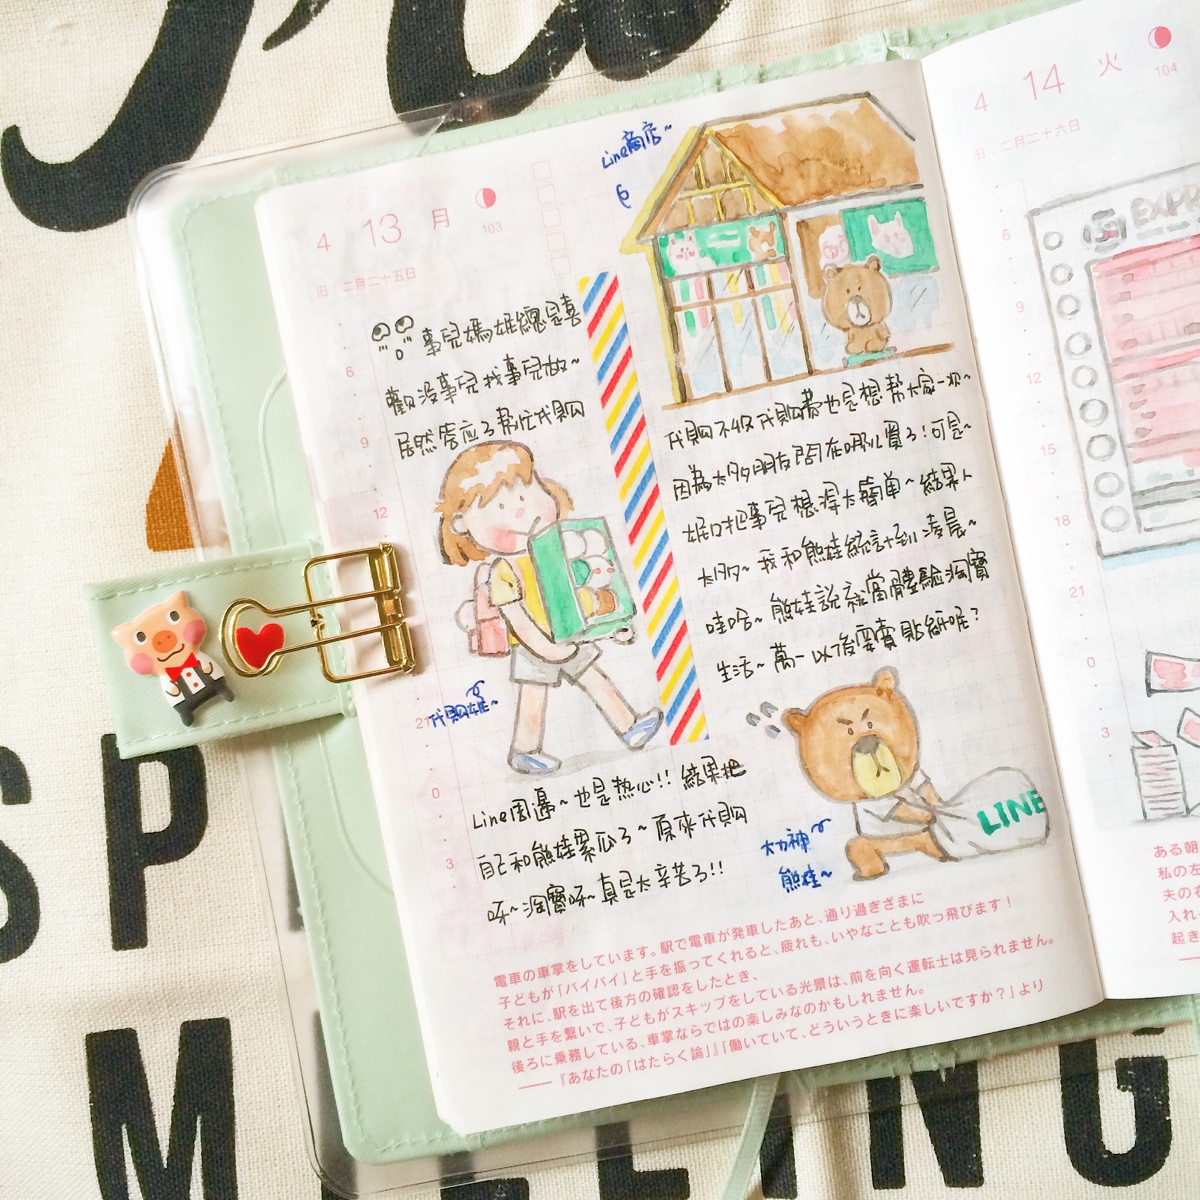 4 13 月
103
旧 二月二十五日
6
9
12
21
0
3
事兒媽娃總是喜
歡沒事兒找事兒做~
居然答应了幫忙代購
代購娃~
Line周邊~也是热心!! 結果把
自己和熊娃累瓜了~原來代購
呀~淘寶呀~真是太辛苦了!!
Line商店~
代購不收代購费也是想幫大家一次~
因為太多朋友问在哪儿買了!可是~
娃口把事兒想得太簡单~結果人
太多~我和熊娃統計到凌晨~
哇哈~熊娃説就當體驗淘寶
生活~萬一以後要賣貼紙呢?
大力神
熊娃~
LINE
電車の車掌をしています。駅で電車が発車したあと、通り過ぎざまに
子どもが「バイバイ」と手を振ってくれると、疲れも、いやなことも吹っ飛びます!
それに、駅を出て後方の確認をしたとき、
親と手を繋いで、子どもがスキップをしている光景は、前を向く運転士は見られません。
後ろに乗務している、車掌ならではの楽しみなのかもしれません。
──『あなたの「はたらく論」』「働いていて、どういうときに楽しいですか?」より
4 14 火
104
旧 二月二十六日
6
9
12
15
18
21
0
3
EXP
ある朝
私の左
夫の右
入れ
起き
SP
M
NG